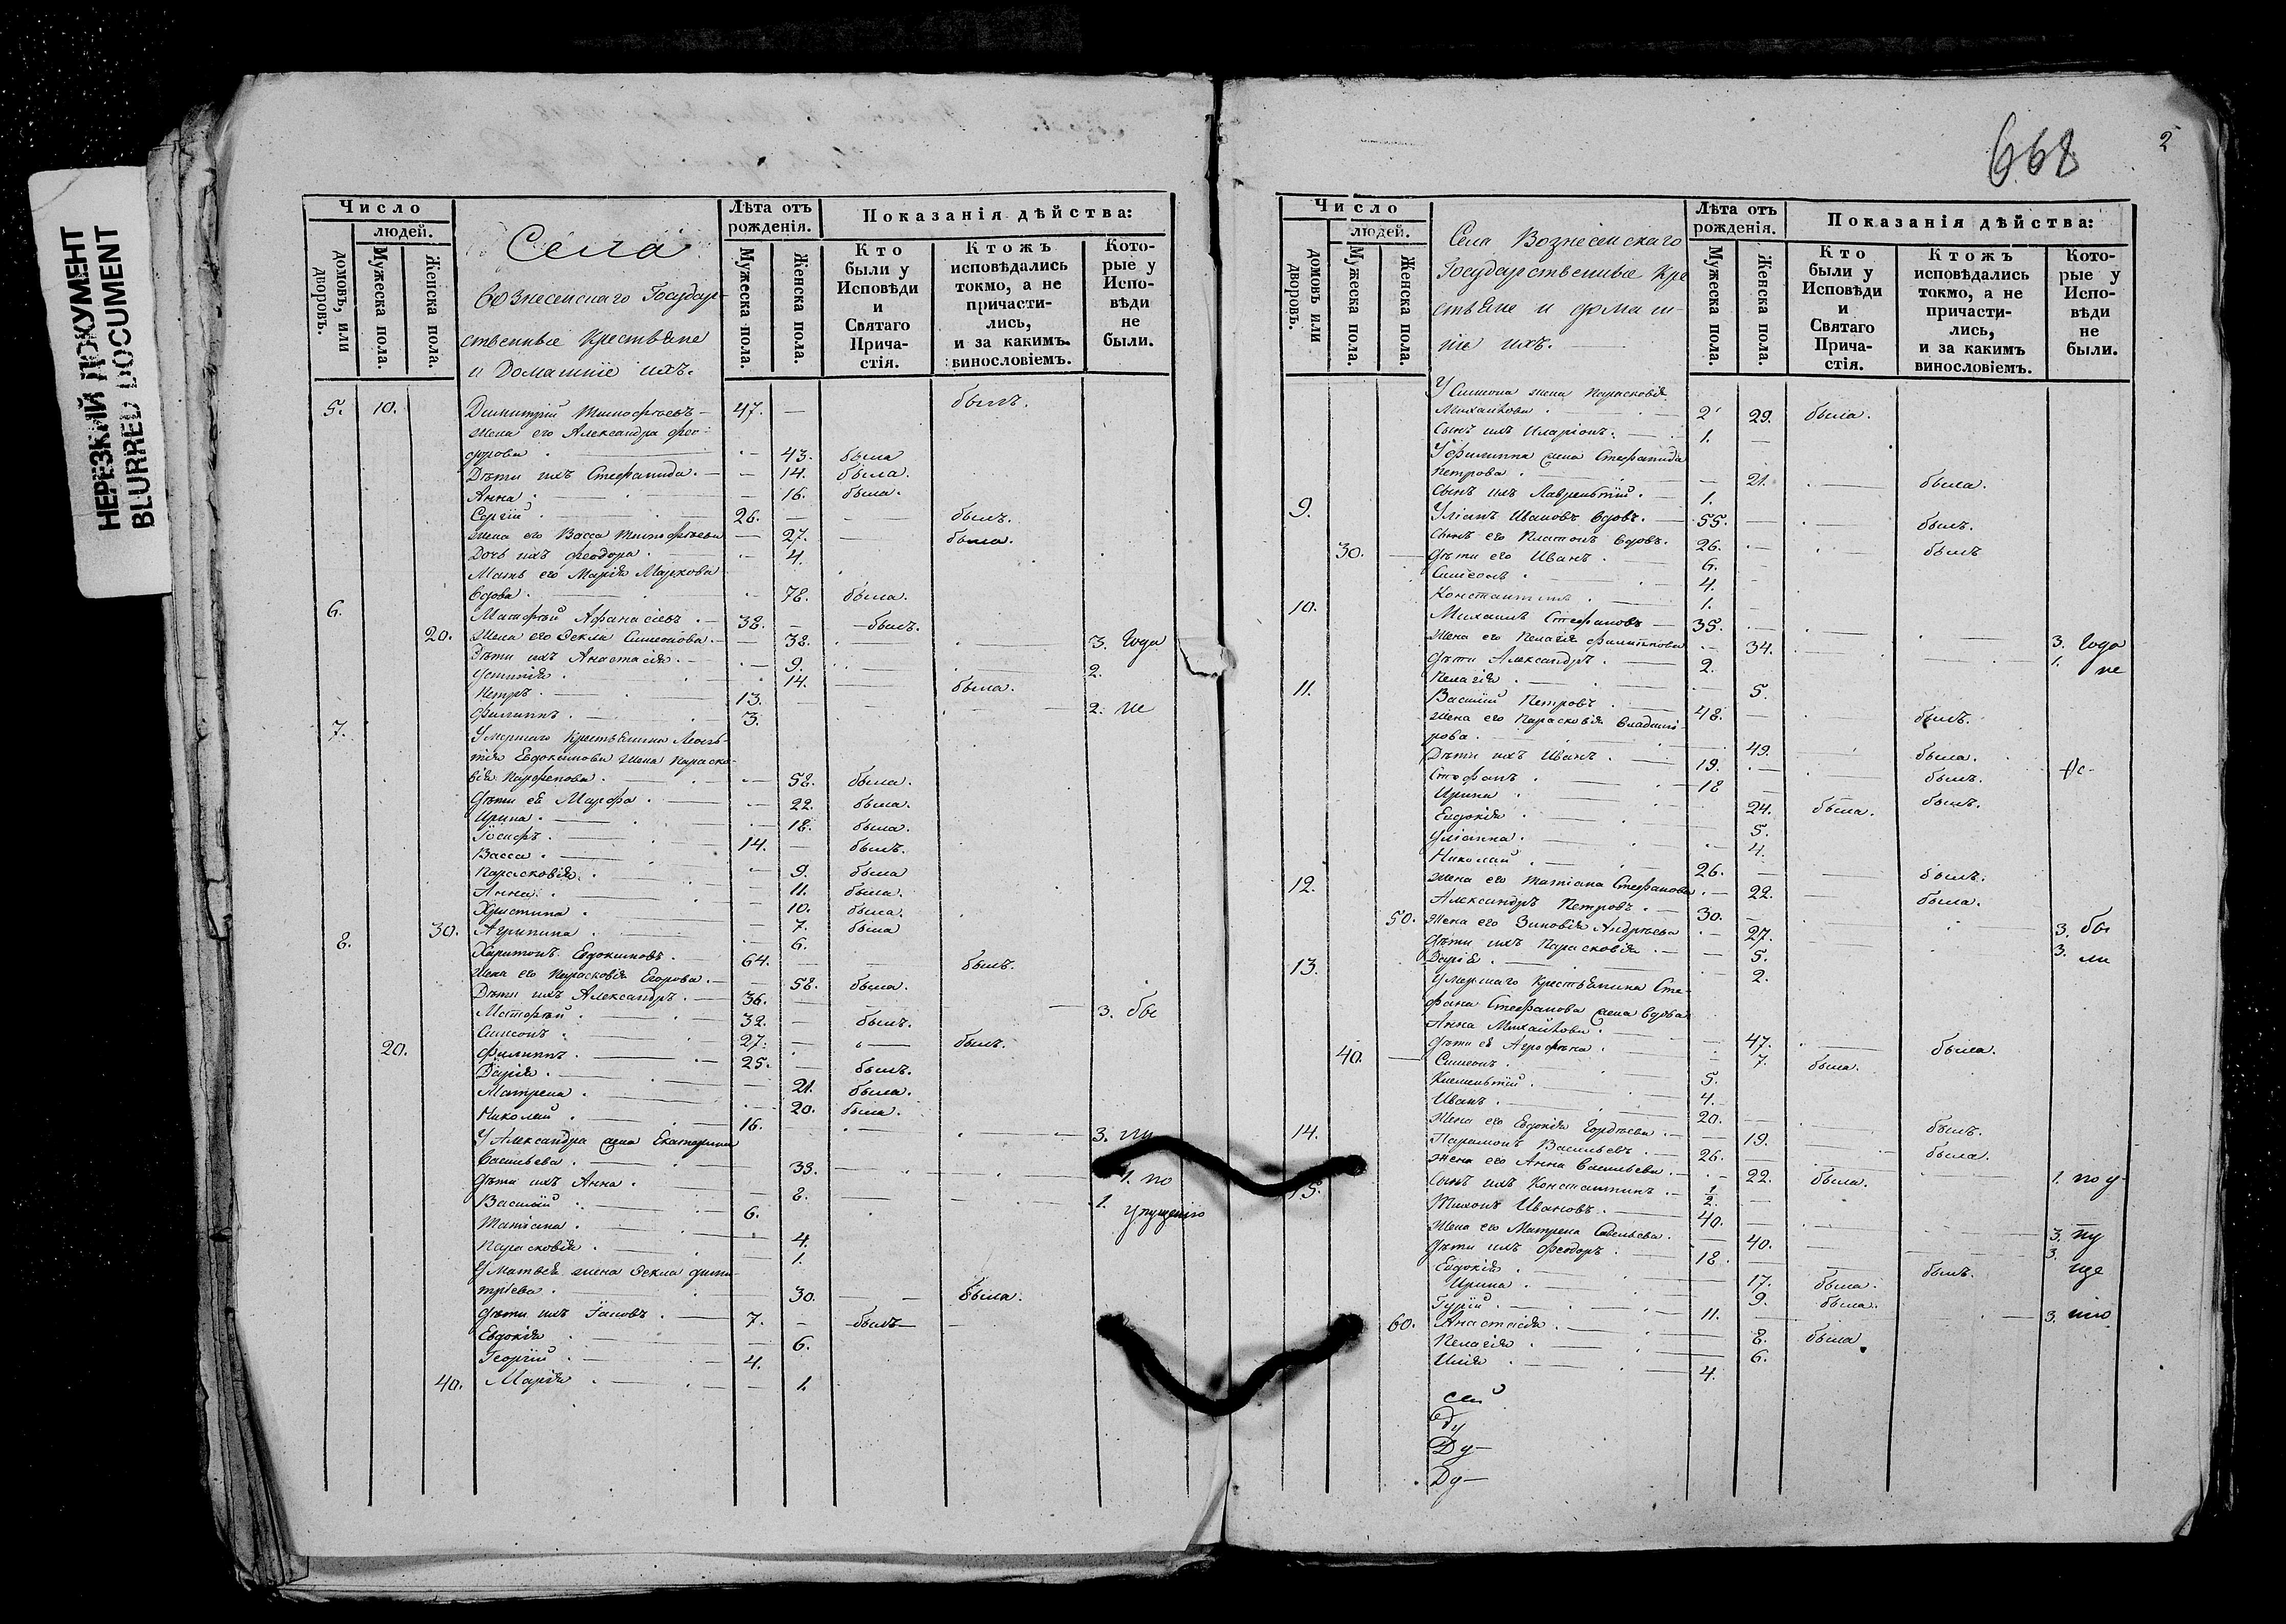 НЕРЕЗКИЙ ДОКУМЕНТ
BLURRED DOCUMENT
Число
людей.
домовъ, или дворовъ.
Мужеска пола.
Женска пола.
Села
Вознесенскаго Государ-
ственные Крестьяне
и Домашніе ихъ.
Лѣта отъ рожденія.
Мужеска пола.
Женска пола.
Показанія дѣйства:
Кто были у Исповѣди и Святаго Прича-стія.
Ктожъ исповѣдались токмо, а не причасти-лись, и за какимъ винословіемъ.
Кото-рые у Испо-вѣди не были.
5. 10. Димитрій Тимофѣевъ 47. — былъ.
жена его Александра Фео-
дорова 43. была
Дѣти ихъ Стефанида. 14. была.
Анна 16. была.
Сергій 26. — былъ.
жена его Васса Тимофѣева 27. была.
Дочь ихъ Феодора. 4.
Мать его Марія Маркова
вдова. 78. была.
6. Матфѣй Афанасіевъ 38. былъ.
20. Жена его Ѳекла Симеонова. 38. 3. Года
Дѣти ихъ Анастасія. 9. 2.
Устинія. 14. была.
Петръ. 13. 2. не
Филиппъ. 3.
7. Умершаго Крестьянина Леон-
тія Евдокимова жена Параско-
вія Парфенова. 58. была.
Дѣти ея Марфа. 22. была.
Ирина. 18. была.
Іосифъ. 14. былъ.
Васса. 9. была
Парасковія. 11. была.
Анна. 10. была.
Христина. 7. была
30. Агрипина. 6.
8. Харитонъ Евдокимовъ. 64. былъ.
жена его Парасковія Егорова. 58. была.
Дѣти ихъ Александръ. 36. 3. бы
Матфѣй. 32. былъ.
Симеонъ. 27. былъ.
20. Филиппъ. 25. былъ.
Дарія. 21. была.
Матрена. 20. была.
Николай 16. 3. ли
У Александра жена Екатерина
Васильева. 38. 1. по
Дѣти ихъ Анна. 8. 1. упущенію
Василій 6.
Татіана. 4.
Парасковія. 1.
У Матвея жена Ѳекла Дими-
тріева. 30. была.
Дѣти ихъ Іаковъ. 7. былъ
Евдокія 6.
Георгій 4.
40. Марія 1.
668
2
Число
людей.
домовъ или дворовъ.
Мужеска пола.
Женска пола.
Села Вознесенскаго
Государственные Кре
стьяне и домаш-
ніе ихъ.
Лѣта отъ рожденія.
Мужеска пола.
Женска пола.
Показанія дѣйства:
Кто были у Исповѣди и Святаго Прича-стія.
Ктожъ исповѣдались токмо, а не причасти-лись, и за какимъ винословіемъ.
Кото-рые у Испо-вѣди не были.
У Симеона жена Парасковія
Михайлова 29. была.
Сынъ ихъ Иларіонъ. 1.
У Филиппа жена Стефанида
Петрова 21. была.
Сынъ ихъ Лаврентій. 1.
9. Уліанъ Ивановъ вдовъ. 55. былъ.
Сынъ его Платонъ вдовъ. 26. былъ
30. Дѣти его Иванъ. 6.
Симеонъ 4.
Константинъ 1.
10. Михаилъ Стефановъ 35. 3. Года
Жена его Пелагія Филиппова 34. 1. не
Дѣти Александръ. 2.
Пелагія. 5.
11. Василій Петровъ. 48. былъ.
жена его Парасковія Владимі-
рова. 49. была.
Дѣти ихъ Иванъ. 19. былъ.
Стефанъ. 18 былъ.
Ирина 24. была.
Евдокія 5.
Уліанна. 4.
Николай 26. былъ.
жена его Татіана Стефанова 22. была.
12. Александръ Петровъ. 30. 3. бы
50. Жена его Зиновія Андреева 27. 3. ли
Дѣти ихъ Парасковія. 5.
Дарія. 2.
13. Умершаго Крестьянина Сте-
фана Стефанова жена вдова
Анна Михайлова. 47. была.
Дѣти ея Агрофена. 7. была.
40. Симеонъ. 5.
Клементій. 4.
Иванъ. 20. былъ.
Жена его Евдокія Гордѣева. 19. была.
14. Парамонъ Васильевъ. 26. 1. по у
жена его Анна Васильева. 22. была.
Сынъ ихъ Константинъ. 1/2.
15. Тихонъ Ивановъ. 40. 3. пу
Жена его Матрена Савельева. 40. 3. ще
Дѣти ихъ Феодоръ. 18. былъ.
Евдокія. 17. была.
Ирина. 9. была.
Гурій. 11. 3. нію
60. Анастасія. 8. была
Пелагія. 6.
Илія 4.
Ду
Ду